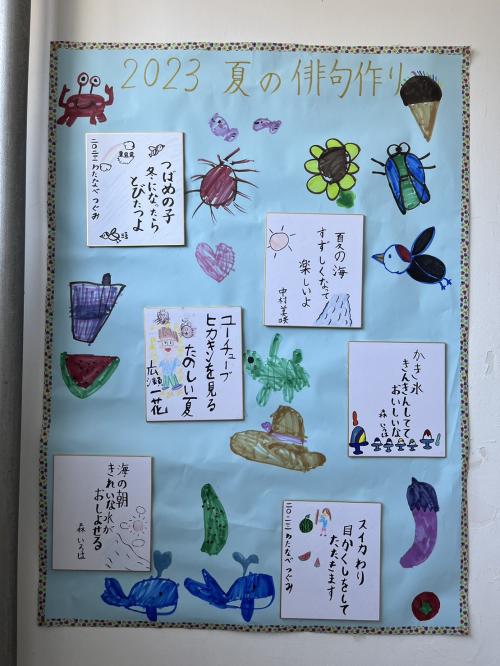 2023 夏の俳句作り
つばめの子
冬になったら
とびたつよ
二〇二三 わたなべ つぐみ
夏の海
すずしくなって
楽しいよ
中村 美咲
ユーチューブ
ヒカキンを見る
たのしい夏
広瀬 一花
かき氷
きんきんしてて
おいしいな
森 いろは
海の朝
きれいな水が
おしよせる
森 いろは
スイカわり
目かくしをして
たたきます
二〇二三 わたなべ つぐみ